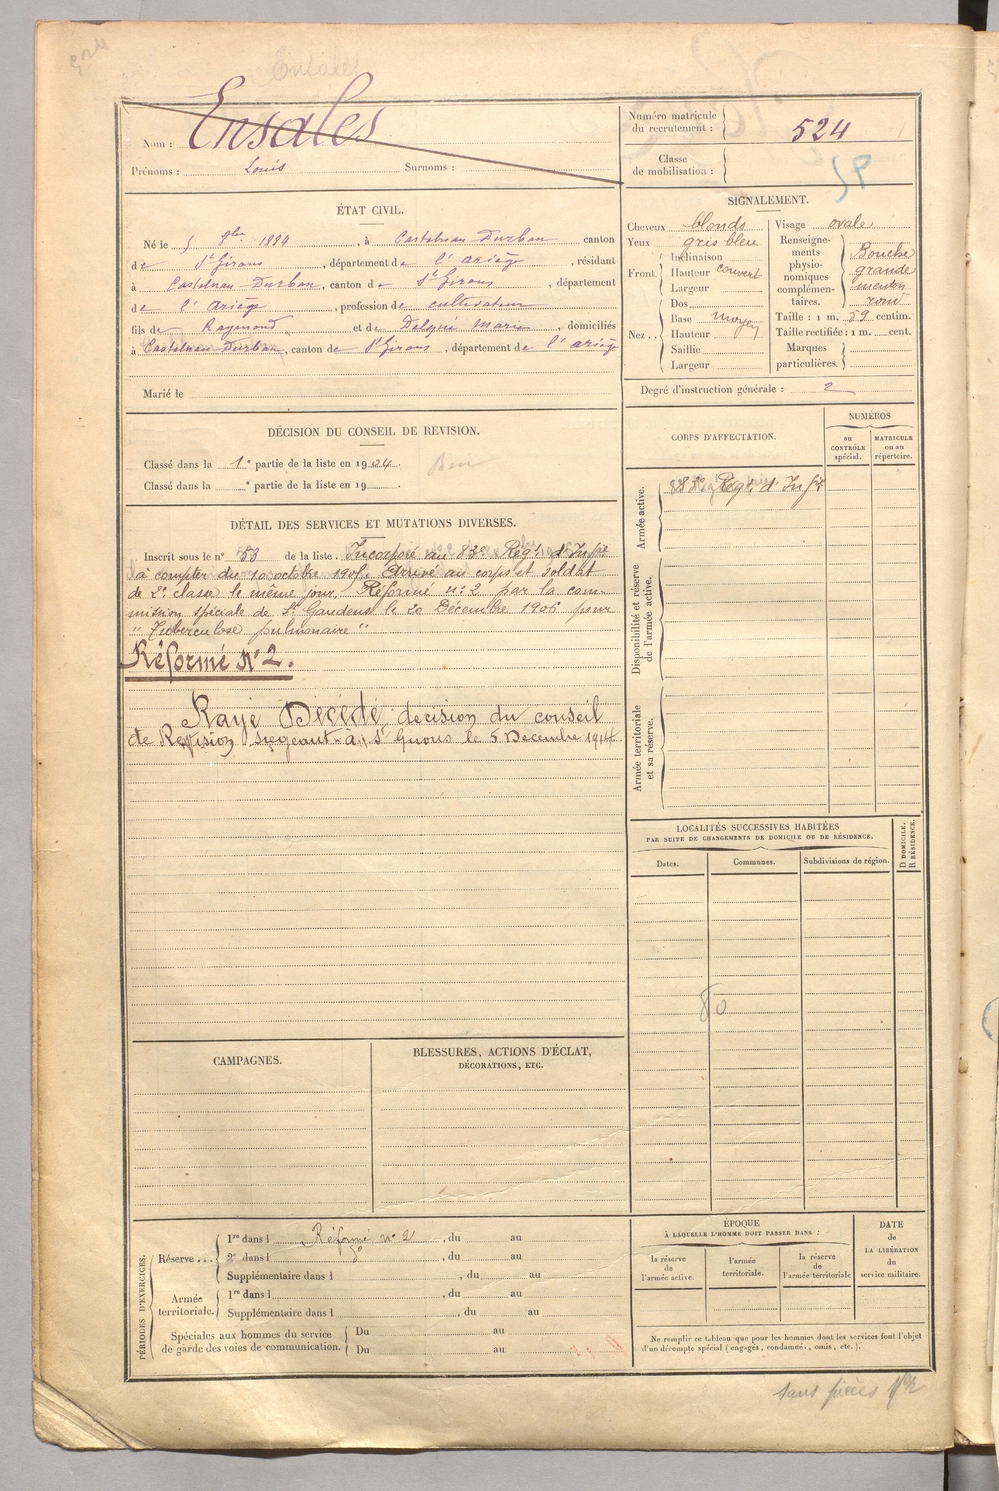 524
Ensales
Nom : Ensales
Prénoms : Louis Surnoms :
Numéro matricule du recrutement : 524
Classe de mobilisation :
ÉTAT CIVIL.
Né le 5 8bre 1884, à Castelnau Durban canton
de St Girons, département de l'Ariège, résidant
à Castelnau Durban, canton de St Girons, département
de l'Ariège, profession de cultivateur
fils de Raymond et de Delqué Marie, domiciliés
à Castelnau Durban, canton de St Girons, département de l'Ariège
Marié le
SIGNALEMENT.
Cheveux blonds
Yeux gris bleu
Front. Inclinaison
Hauteur couvert
Largeur
Nez.. Dos
Base moyen
Hauteur
Saillie
Largeur
Visage ovale
Renseignements physionomiques complémentaires. Bouche grande menton rond
Taille : 1 m. 59 centim.
Taille rectifiée : 1 m. cent.
Marques particulières.
Degré d'instruction générale : 2
DÉCISION DU CONSEIL DE REVISION.
Classé dans la 1e partie de la liste en 19
Classé dans la e partie de la liste en 19
Bon
DÉTAIL DES SERVICES ET MUTATIONS DIVERSES.
Inscrit sous le n° 53 de la liste. Incorporé au 83e Régt d'Infie
à compter du 10 octobre 190. Arrivé au corps et soldat
de 2e classe le même jour. Réformé n° 2 par la com-
mission spéciale de St Gaudens le 20 Décembre 1906 pour
" Tuberculose pulmonaire "
Réformé N° 2.
Rayé Décédé, decision du conseil
de Revision siégeant à St Girons le 5 Décembre 1914
CORPS D'AFFECTATION.
NUMÉROS
au CONTRÔLE spécial.
MATRICULE ou au répertoire.
Armée active.
Régt d'Infie
Disponibilité et réserve de l'armée active.
Armée territoriale et sa réserve.
LOCALITÉS SUCCESSIVES HABITÉES
PAR SUITE DE CHANGEMENTS DE DOMICILE OU DE RÉSIDENCE.
Dates.
Communes.
Subdivisions de région.
D DOMICILE.
R RÉSIDENCE.
80
CAMPAGNES.
BLESSURES, ACTIONS D'ÉCLAT,
DÉCORATIONS, ETC.
PÉRIODES D'EXERCICES.
Réserve...
1re dans l Réformé n° 2, du au
2e dans l , du au
Supplémentaire dans l , du au
Armée territoriale.
1re dans l , du au
Supplémentaire dans l , du au
Spéciales aux hommes du service de garde des voies de communication.
Du au
Du au
ÉPOQUE
À LAQUELLE L'HOMME DOIT PASSER DANS :
la réserve de l'armée active.
l'armée territoriale.
la réserve de l'armée territoriale
DATE de LA LIBÉRATION du service militaire.
Ne remplir ce tableau que pour les hommes dont les services font l'objet
d'un décompte spécial (engagés, condamnés, omis, etc.).
sans pièces